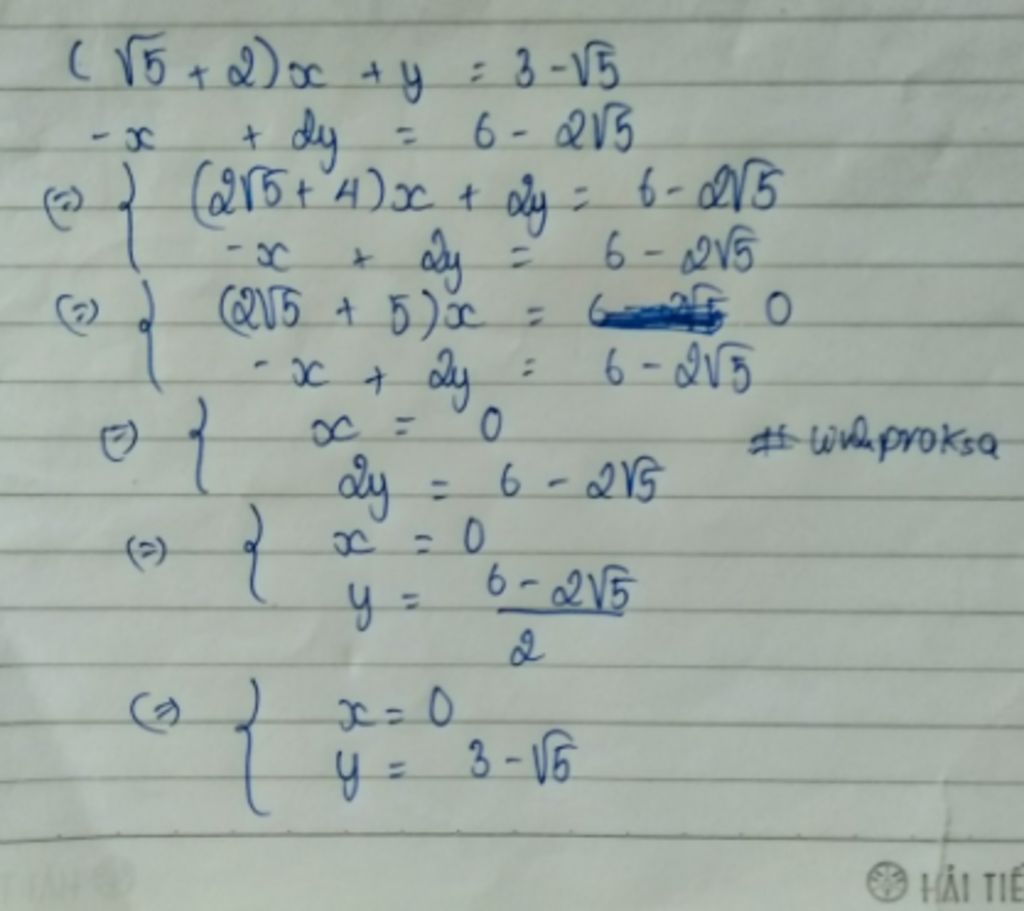 (√5 + 2)x + y = 3 - √5
-x + 2y = 6 - 2√5
(=) { (2√5 + 4)x + 2y = 6 - 2√5
-x + 2y = 6 - 2√5
(=) { (2√5 + 5)x = 0
-x + 2y = 6 - 2√5
(=) { x = 0
2y = 6 - 2√5
(=) { x = 0
y = 6 - 2√5 / 2
(=) { x = 0
y = 3 - √5
HẢI TIẾ